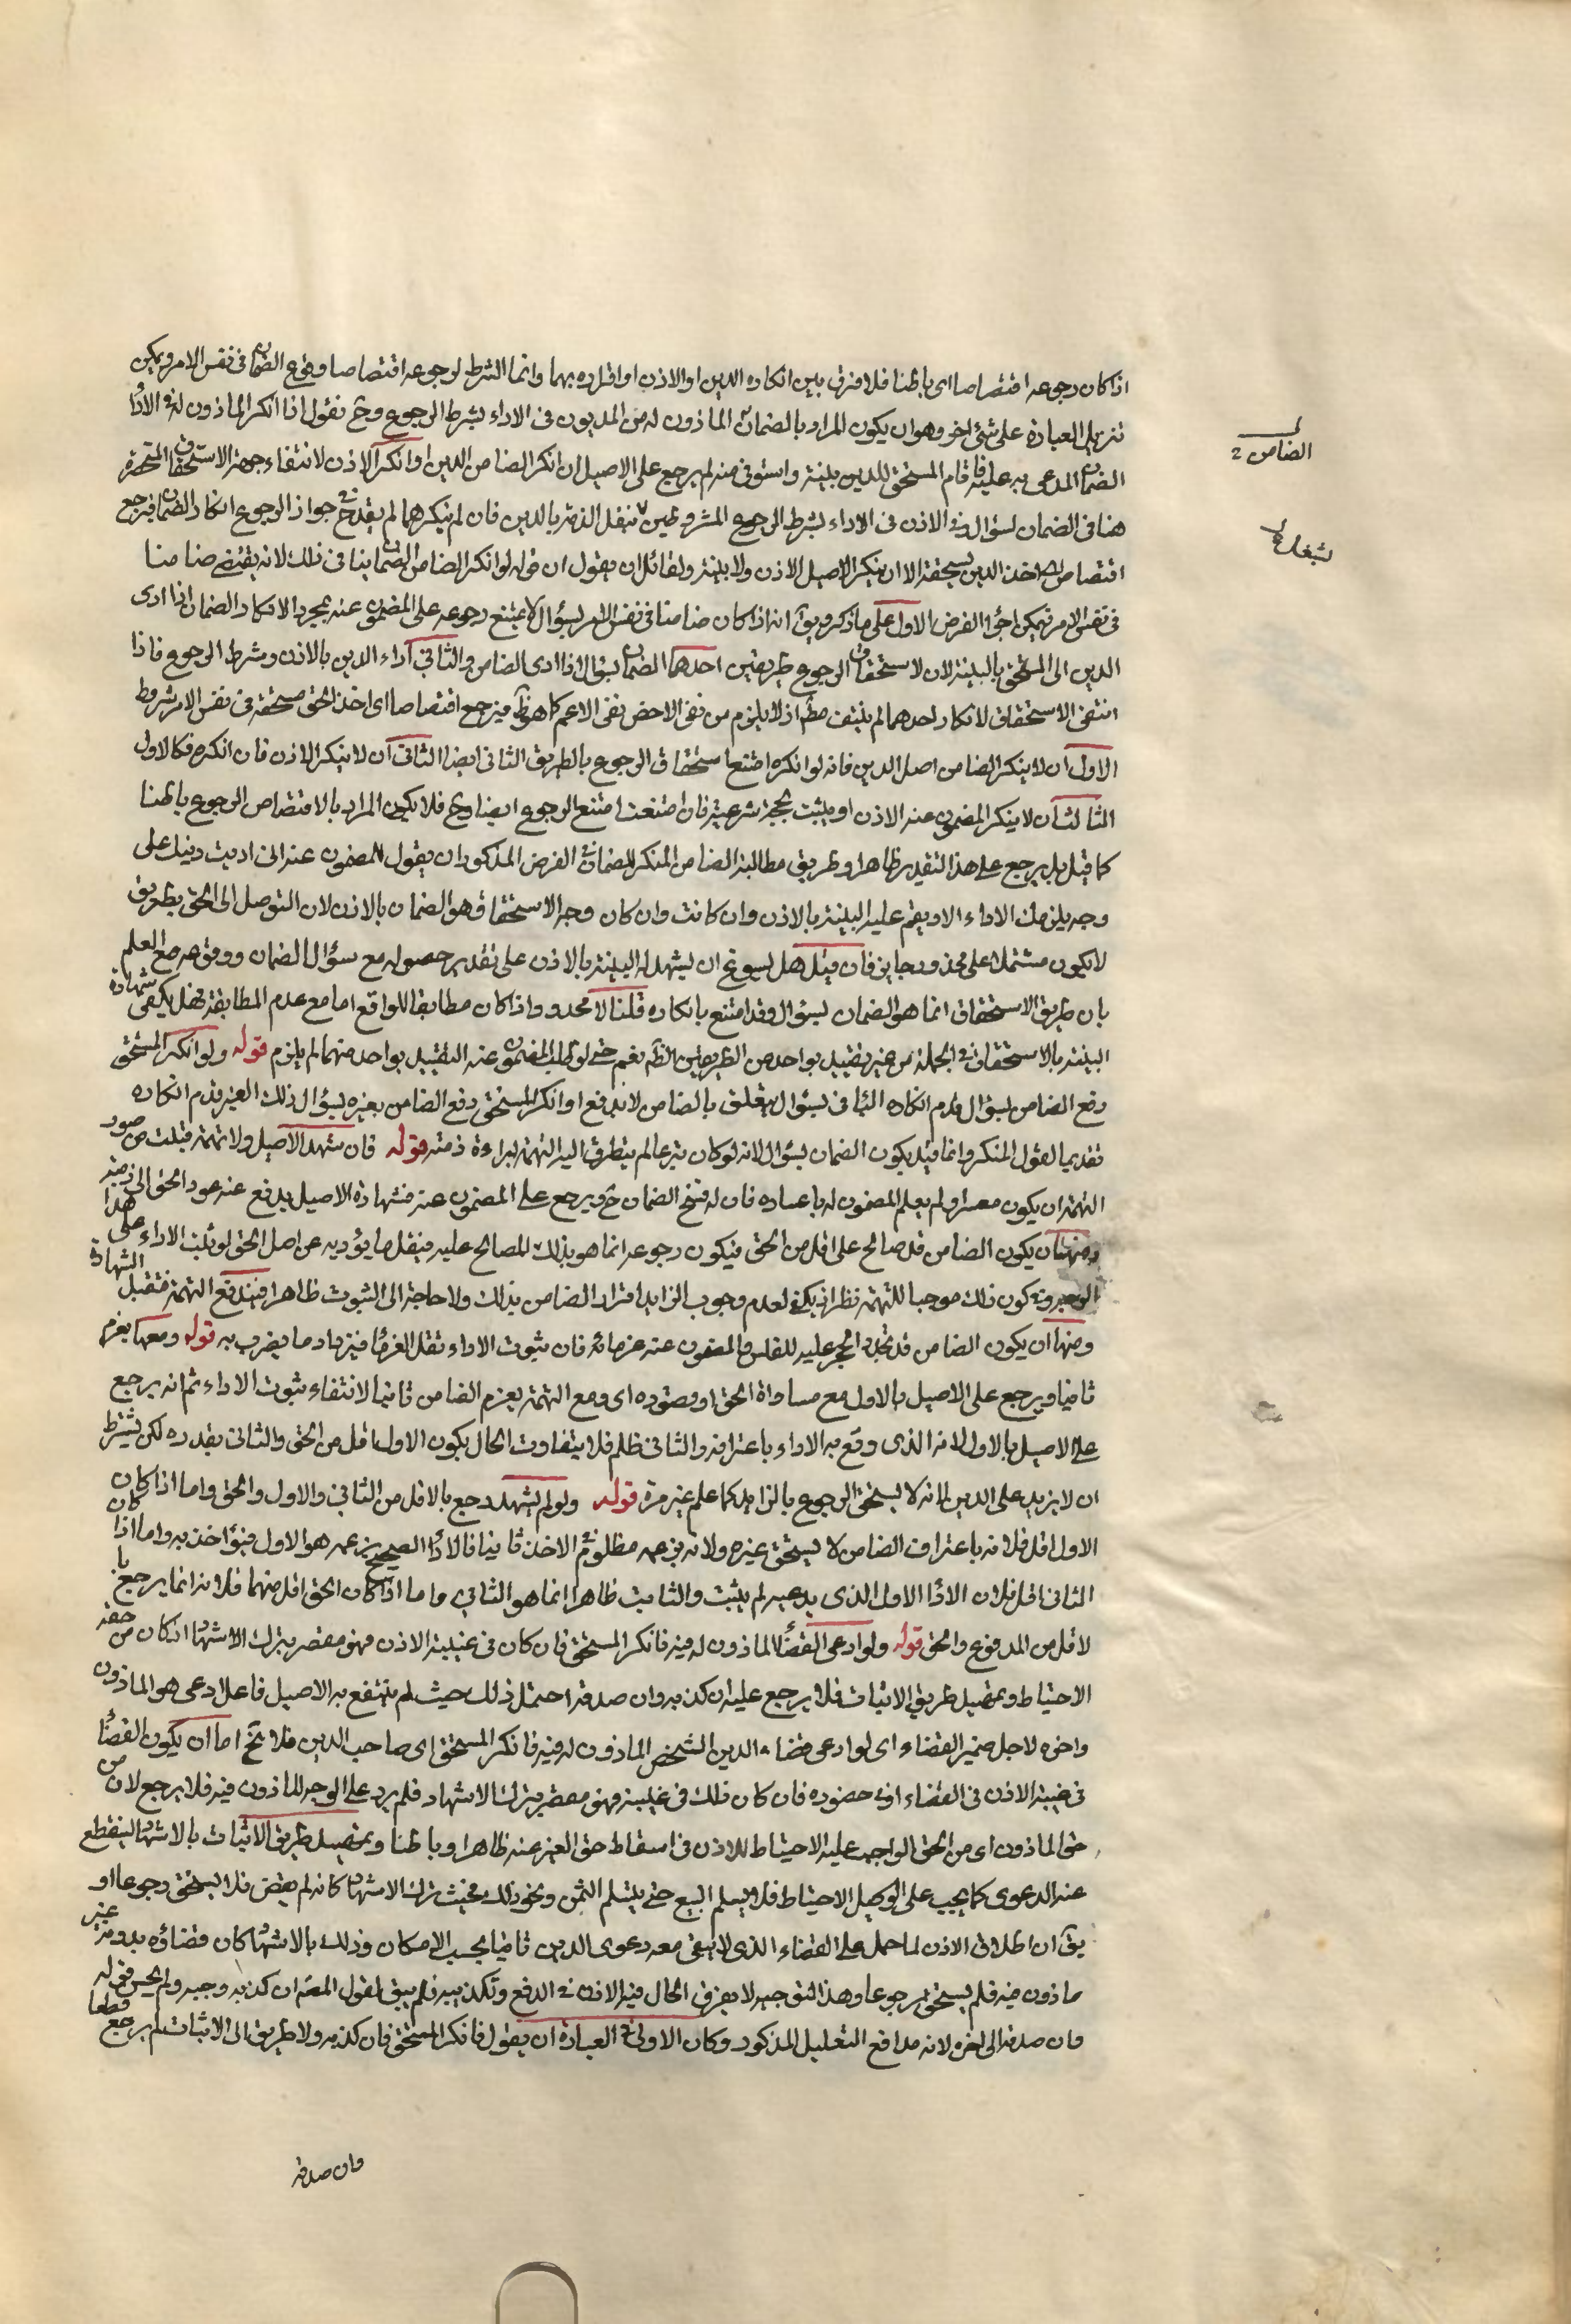 اذا كان رجوعه اقتصاصا اى باطنا فلا فرق بين انكاره الدين او الاذن او اقراره بهما وانما الشرط لرجوعه اقتصاصا وقوع الضمان فى نفس الامر ويمكن
تنزيل العبارة على شئ اخر وهو ان يكون المراد بالضمان الماذون له من المديون فى الاداء بشرط الرجوع وح نقول اذا انكر الماذون له فى الاداء
الضمان المدعى به عليه فاقام المستحق للدين بينة واستوفى منه لم يرجع على الاصيل ان انكر الضامن الدين او انكر الاذن لانتفاء جهة الاستحقاق المنحصرة
هنا فى الضمان بسؤال وفى الاذن فى الاداء بشرط الرجوع المشروطين بشغل الذمة بالدين فان لم ينكرهما لم يقدح فى جواز الرجوع انكار الضمان فيرجع
اقتصاصا اخذ الدين مستحقه الا ان ينكر الاصيل الاذن ولا بينة ولقائل ان يقول ان قوله لو انكر الضامن الضمان ينافى ذلك لانه يقتضى ضامنا
فى نفس الامر فيمكن اجراء الفرض الاول على ما ذكر ويق انه اذا كان ضامنا فى نفس الامر بسؤال لا يمتنع رجوعه على المضمون عنه بمجرد الانكار الضمان اذا ادى
الدين الى المستحق بالبينة لان لاستحقاق الرجوع طريقين احدهما الضمان بسؤال اذا ادى الضامن والثانى اداء الدين بالاذن وشرط الرجوع فاذا
انتفى الاستحقاق لانكار احدهما لم ينتف مطلقا اذ لا يلزم من نفى الاخص نفى الاعم كما هو ظ فيرجع اقتصاصا اى اخذ الحق مستحقه فى نفس الامر بشروط
الاول ان لا ينكر الضامن اصل الدين فانه لو انكره امتنع استحقاق الرجوع بالطريق الثانى ايضا الثانى ان لا ينكر الاذن فان انكره فكالاول
الثالث ان لا ينكر المضمون عنه الاذن او يثبت بحجة شرعية فان امتنعت امتنع الرجوع ايضا وح فلا يكون المراد بالاقتصاص الرجوع باطنا
كما قيل بل يرجع على هذا التقدير ظاهرا وطريق مطالبة الضامن المنكر للضمان فى الفرض المذكور ان يقول للمضمون عنه انى اديت دينك على
وجه يلزمك الاداء الا ويقم عليه البينة بالاذن وان كانت وان كان وجه الاستحقاق هو الضمان بالاذن لان التوصل الى الحق بطريق
لا يكون مشتملا على محذور جايز فان قيل هل يسوغ ان يشهد له البينة بالاذن على تقدير حصوله مع سؤال الضمان ووقوعه مع العلم
بان طريق الاستحقاق انما هو الضمان بسؤال وقد امتنع بانكاره قلنا لا محذور اذا كان مطابقا للواقع اما مع عدم المطابقة فهل يكفى شهادة
البينة بالاستحقاق فى الجملة من غير تقييد بواحد من الطريقين الظ نعم حتى لو طلب المضمون عنه التقييد بواحد منهما لم يلزم قوله ولو انكر المستحق
دفع الضامن بسؤال قدم انكاره انما فى بسؤال يتعلق بالضامن لا بدفع او انكر المستحق دفع الضامن بغيره بسؤال ذلك الغير قدم انكاره
تقديما لقول المنكر وانما قيد بكون الضمان بسؤال لانه لو كان تبرعا لم يتطرق اليه التهمة لبراءة ذمته قوله فان شهد الاصيل ولا تهمة قبلت من صور
التهمة ان يكون معسرا ولم يعلم المضمون له باعساره فان له فسخ الضمان ح ويرجع على المضمون عنه فشهادة الاصيل يدفع عنه عود الحق الى ذمته
ومنها ان يكون الضامن قد صالح على اقل من الحق فيكون رجوعه انما هو بذلك المصالح عليه فيقل ما يؤديه عن اصل الحق لو ثبت الاداء على هذا
الوجه وفى كون ذلك موجبا للتهمة نظر اذ يكفى لعدم وجوب الزايد اقرار الضامن بذلك ولا حاجة الى الثبوت ظاهرا فيندفع التهمة فتقبل الشهادة
ومنها ان يكون الضامن قد تجدد الحجر عليه للفلس والمضمون عنه غرمائه فان ثبوت الاداء تقلل الغرماء فيزداد ما يضرب به قوله ومعها يغرم
ثانيا ويرجع على الاصيل بالاول مع مساواة الحق او قصوره اى ومع التهمة يغرم الضامن ثانيا لانتفاء ثبوت الاداء ثم انه يرجع
على الاصيل بالاول لانه الذى وقع به الاداء باعترافه والثانى ظلم فلا يتفاوت الحال بكون الاول اقل من الحق والثانى بقدره لكن يشترط
ان لا يزيد على الدين لانه لا يستحق الرجوع بالزايد كما علم غير مرة قوله ولو لم يشهد رجع بالاقل من الثانى والاول والحق واما اذا كان
الاول اقل فلانه باعتراف الضامن لا يستحق غيره ولانه بزعمه مظلوم فى الاخذ ثانيا فالاداء الصحيح بزعمه هو الاول فيؤاخذ به واما اذا كان
الثانى اقل فلان الاداء الاول الذى يدعيه لم يثبت والثابت ظاهرا انما هو الثانى واما اذا كان الحق اقل منهما فلانه انما يرجع با
لاقل من المدفوع والحق قوله ولو ادعى القضاء الماذون له فيه فانكر المستحق فان كان فى غيبة الاذن فهو مقصر بترك الاشهاد اذ كان من حقه
الاحتياط وتحصيل طريق الاثبات فلا يرجع عليه ان كذبه وان صدقه احتمل ذلك حيث لم ينتفع به الاصيل فاعل ادعى هو الماذون
واخره لاجل ضمير القضاء اى لو ادعى قضاء الدين الشخص الماذون له فيه فانكر المستحق اى صاحب الدين فلا يخ اما ان يكون القضاء
فى غيبة الاذن فى القضاء او فى حضوره فان كان ذلك فى غيبته فهو مقصر بترك الاشهاد فلم يرد على الوجه الماذون فيه فلا يرجع لان من
حق الماذون اى من الحق الواجب عليه الاحتياط للاذن فى اسقاط حق الغير عنه ظاهرا وباطنا وتحصيل طريق الاثبات بالاشهاد لينقطع
عنه الدعوى كما يجب على الوكيل الاحتياط فلا يسلم البيع حتى يتسلم الثمن ونحو ذلك فحيث ترك الاشهاد كانه لم يقض فلا يستحق رجوعا او
يق ان اطلاق الاذن لما حمل على القضاء الذى لا يبقى معه دعوى الدين ثانيا بحسب الامكان وذلك بالاشهاد كان قضاؤه بدونه غير
ماذون فيه فلم يستحق به رجوعا وهذا التوجيه لا يفرق الحال فيه الاذن فى الدفع وتكذيبه فلم يبق لقول المص ان كذبه وجه ولم يحسن قوله
وان صدقه الى اخره لانه مدافع التعليل المذكور وكان الاولى فى العبارة ان يقول فانكر المستحق فان كذبه ولا طريق الى الاثبات لم يرجع قطعا
وان صدقه
الضامن
لشغل